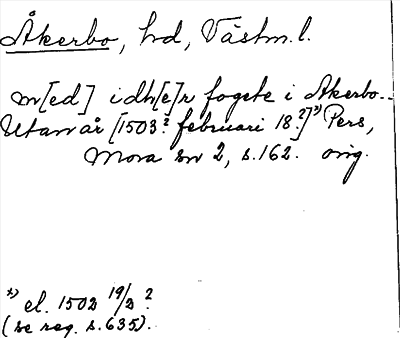 Åkerbo, hd, Västm. l.
m[ed] idh[e]r fogete i Akerbo...
Utan år [1503? februari 18?]*) Pers,
Mora sn 2, s. 162. orig.
*) el. 1502 19/2?
(se reg. s. 635).